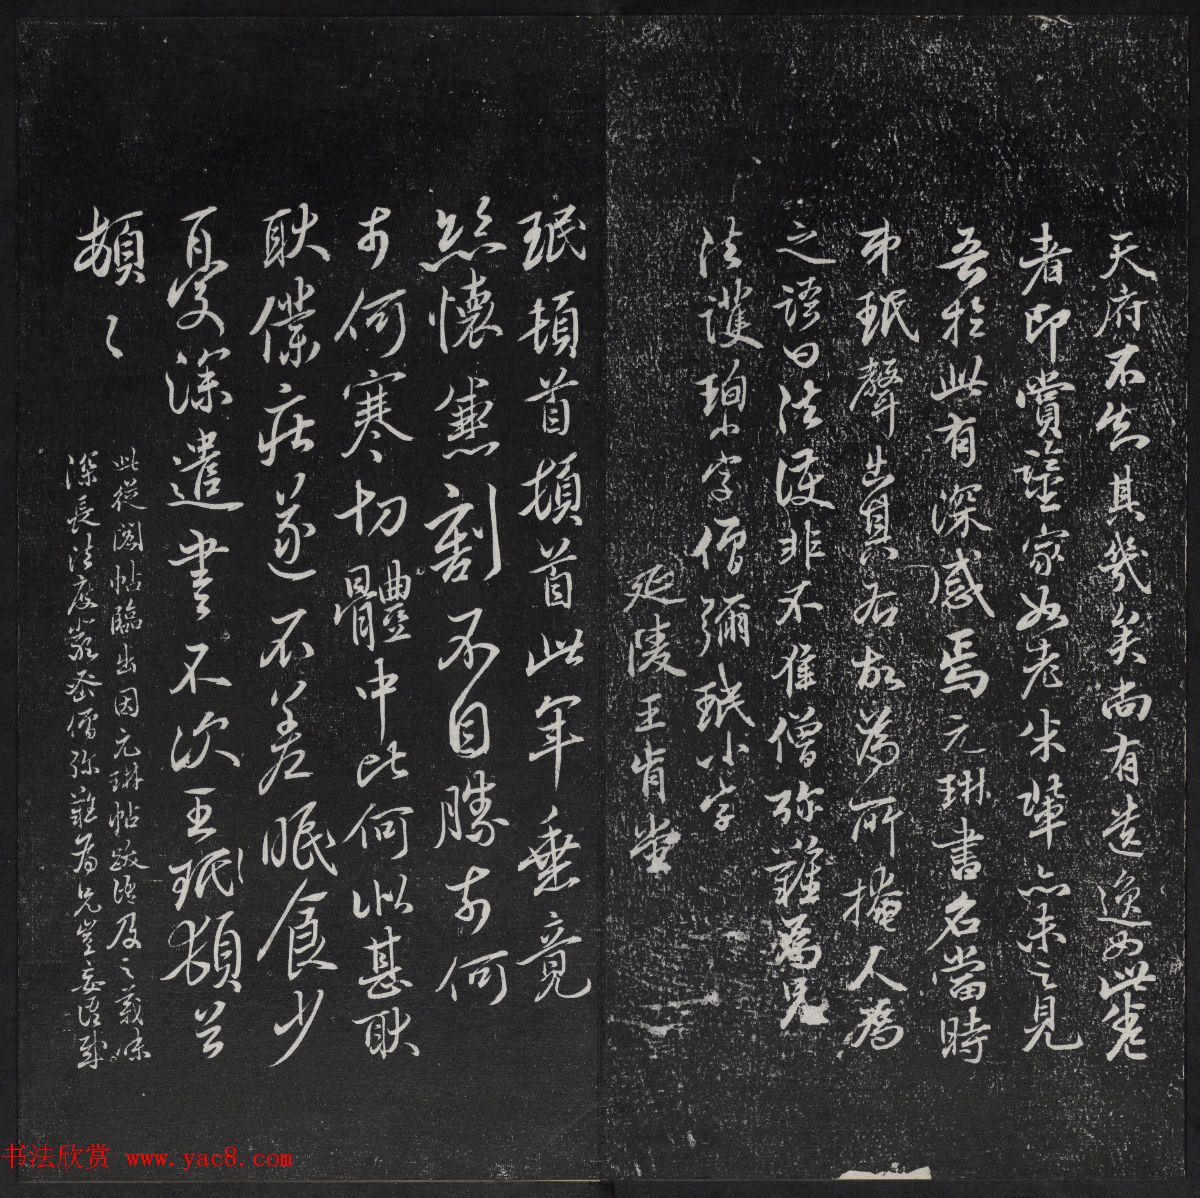 天府不知其幾矣尚有遺逸如此卷
者即賞鑒家如老米輩亦未之見
吾於此有深感焉元琳書名當時
弟珉聲出其右故為所掩人為
之語曰法護非不佳僧彌難為兄
法護珣小字僧彌珉小字
延陵王肯堂
珉頓首頓首此年垂竟
悲懷兼割不自勝奈何
奈何寒切體中比何似甚耿
耿僕疾遂不差眠食少
自憂深遣書不次王珉頓首
頓〻
此從閣帖臨出因元琳帖跋語及之義味
深長法度嚴密僧弥難為兄豈妄語哉
书法欣赏 www.yac8.com